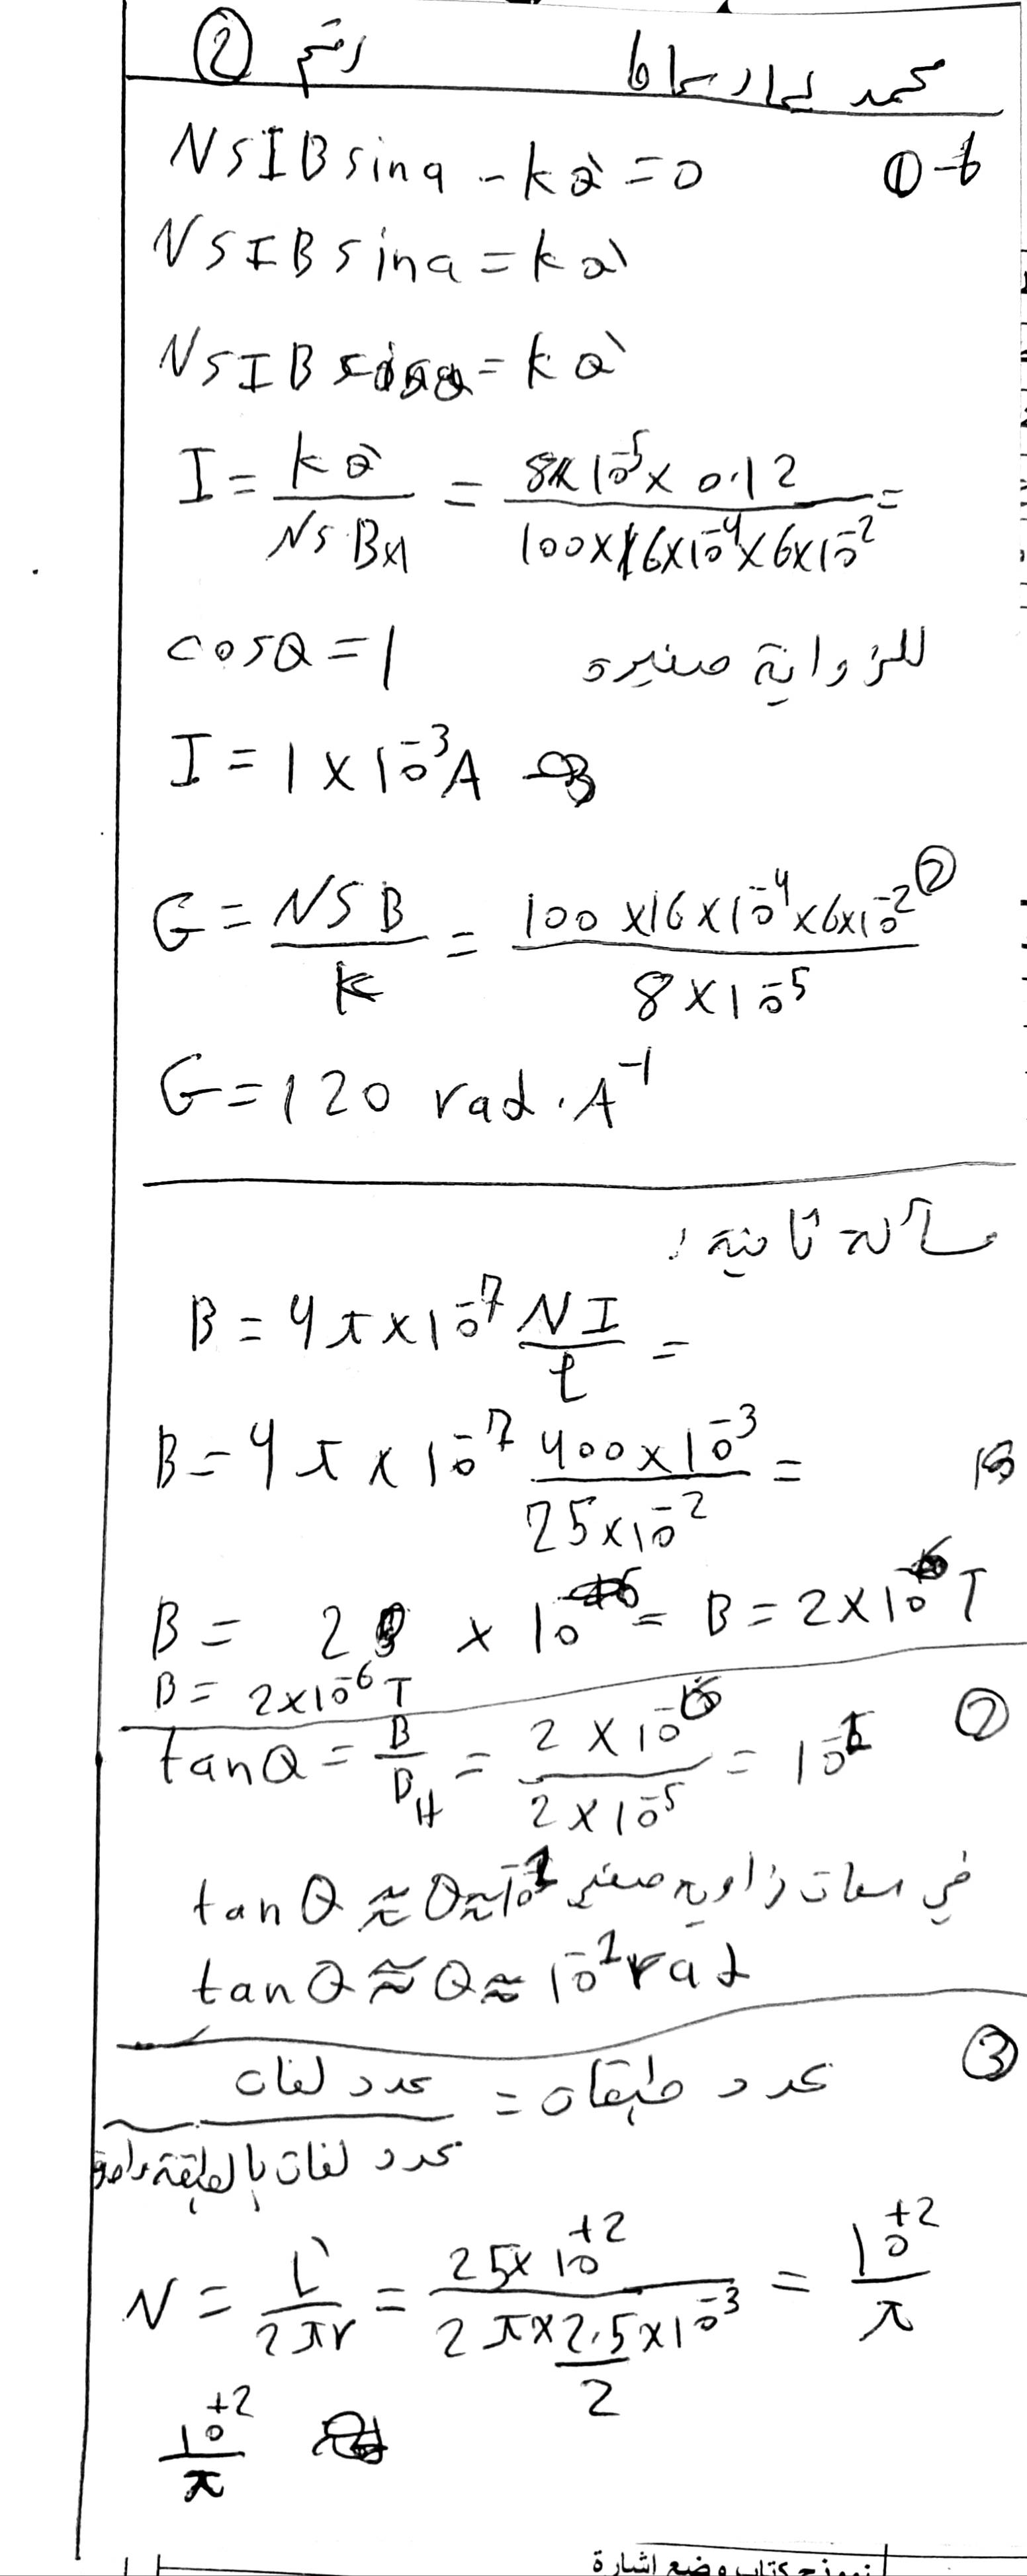 رقم ②
NSIB sin α - kθ' = 0
① -b
NSIB sin α = kθ'
NSIB = kθ'
I = kθ' / NSB×1 = 8×10^-5 × 0.12 / 100×16×10^-4×6×10^-2 =
cos θ = 1 للزواية صغيره
I = 1×10^-3 A
②
G = NSB / k = 100×16×10^-4×6×10^-2 / 8×10^-5
G = 120 rad.A^-1
مسألة ثانية:
B = 4π×10^-7 NI / l =
B = 4π×10^-7 400×10^-3 / 25×10^-2 =
B = 2 × 10^-6 = B = 2×10^-6 T
B = 2×10^-6 T
②
tan θ = B / B_H = 2×10^-6 / 2×10^-5 = 10^-1
tan θ ≈ θ ≈ 10^-1 في زاويه صغيره
tan θ ≈ θ ≈ 10^-1 rad
③
عدد طبقات = عدد لفات / عدد لفات بالطبقة واحدة
N = l' / 2πr = 25×10^+2 / 2π×2.5/2×10^-3 = 10^+2 / π
10^+2 / π
نموذج كتاب وضع اشارة